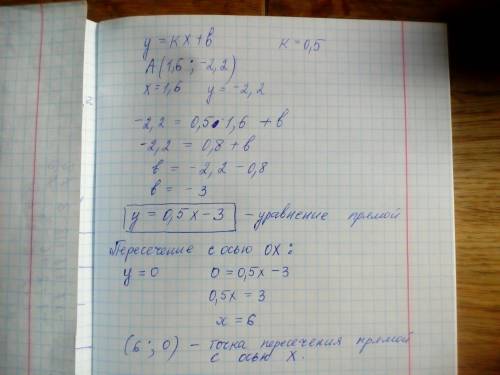 y = kx + b k = 0,5
A(1,6 ; -2,2)
x = 1,6 y = -2,2
-2,2 = 0,5 • 1,6 + b
-2,2 = 0,8 + b
b = -2,2 - 0,8
b = -3
y = 0,5x - 3 - уравнение прямой
Пересечение с осью OX:
y = 0 0 = 0,5x - 3
0,5x = 3
x = 6
(6 ; 0) - точка пересечения прямой
с осью X.